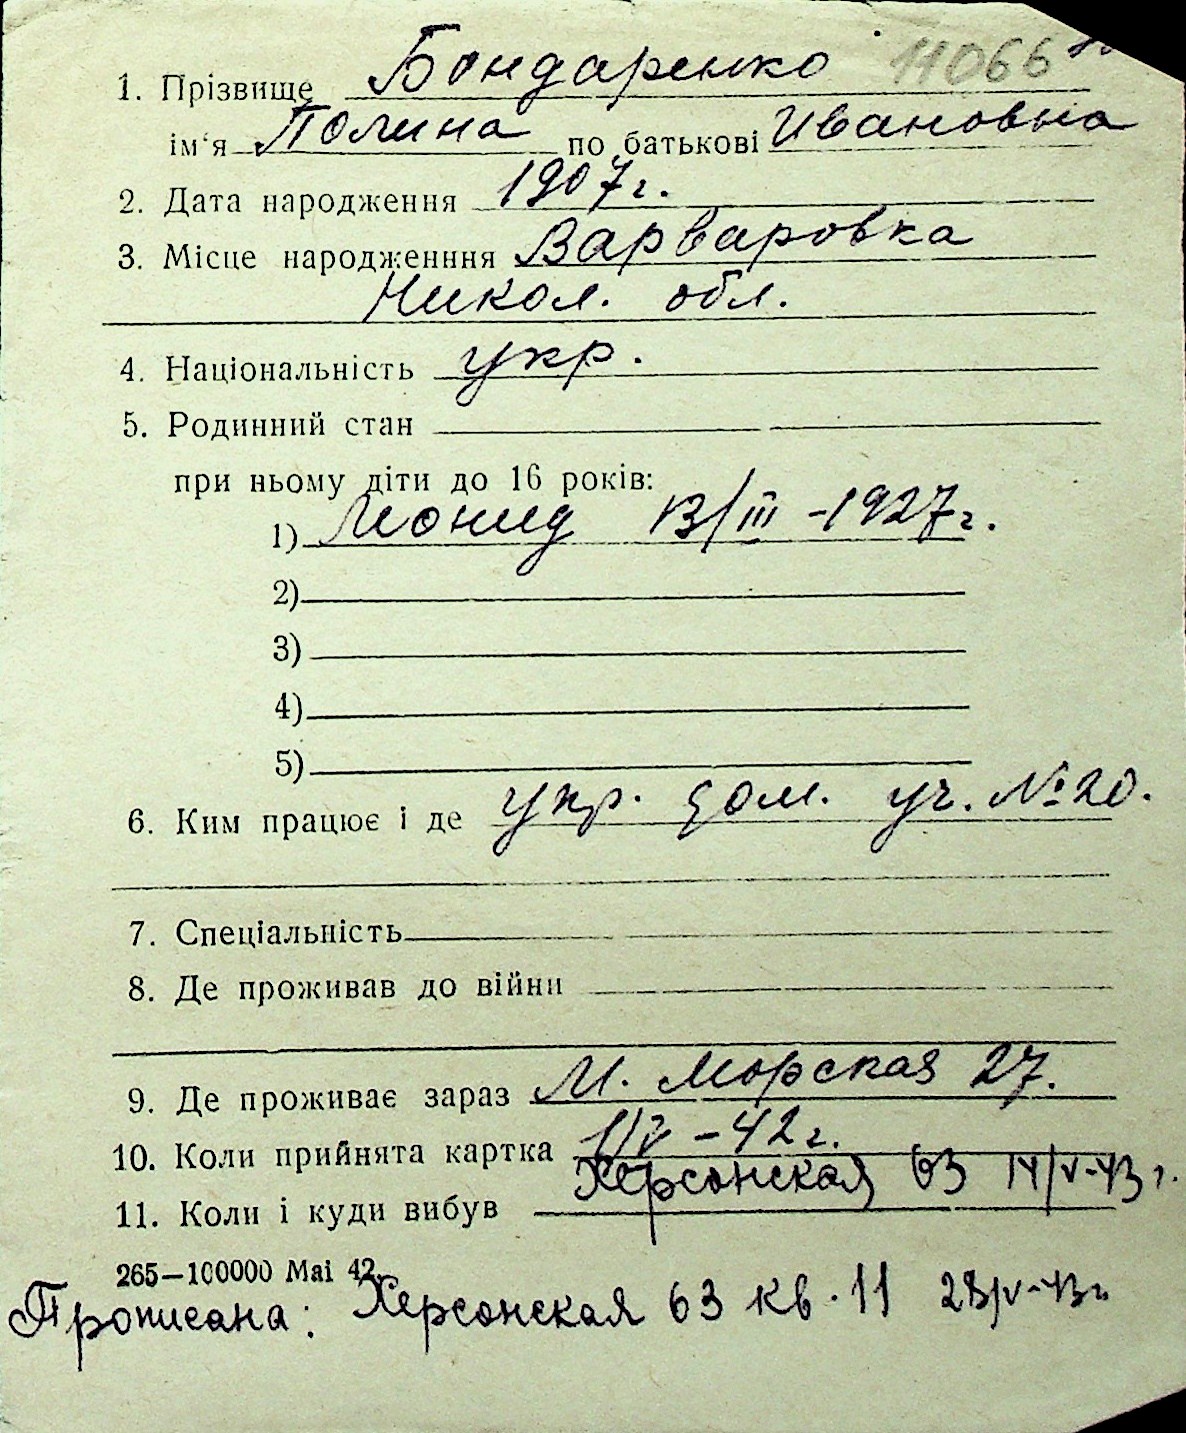 11066
1. Прізвище Бондаренко
ім'я Полина по батькові Ивановна
2. Дата народження 1907г.
3. Місце народженння Варваровка
Никол. обл.
4. Національність укр.
5. Родинний стан
при ньому діти до 16 років:
1) Леонид 13/III -1927г.
2)
3)
4)
5)
6. Ким працює і де упр. дом. уч. №20.
7. Спеціальність
8. Де проживав до війни
9. Де проживає зараз М. Морская 27.
10. Коли прийнята картка 1/V -42г.
11. Коли і куди вибув Херсонская 63 14/V-43г.
265—100000 Mai 42.
Прописана: Херсонская 63 кв. 11 28/V-43г